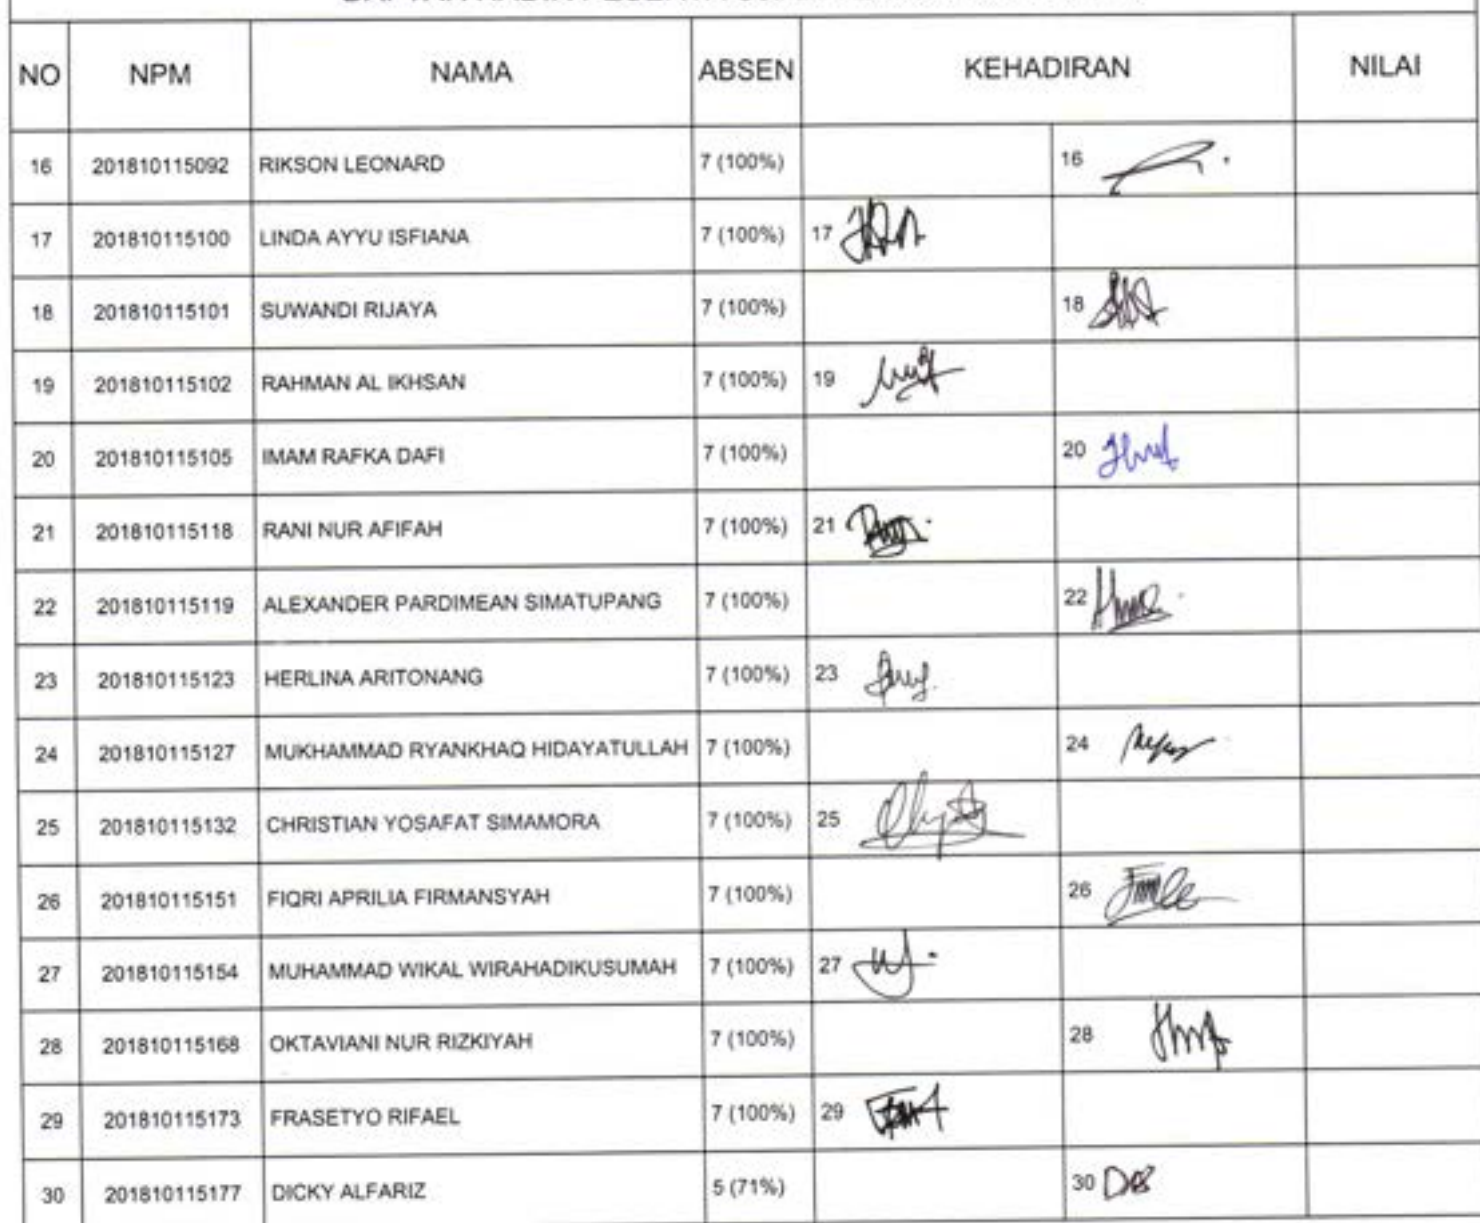 NO NPM NAMA ABSEN KEHADIRAN NILAI
16 201810115092 RIKSON LEONARD 7 (100%) 16
17 201810115100 LINDA AYYU ISFIANA 7 (100%) 17
18 201810115101 SUWANDI RIJAYA 7 (100%) 18
19 201810115102 RAHMAN AL IKHSAN 7 (100%) 19
20 201810115105 IMAM RAFKA DAFI 7 (100%) 20
21 201810115118 RANI NUR AFIFAH 7 (100%) 21
22 201810115119 ALEXANDER PARDIMEAN SIMATUPANG 7 (100%) 22
23 201810115123 HERLINA ARITONANG 7 (100%) 23
24 201810115127 MUKHAMMAD RYANKHAQ HIDAYATULLAH 7 (100%) 24
25 201810115132 CHRISTIAN YOSAFAT SIMAMORA 7 (100%) 25
26 201810115151 FIQRI APRILIA FIRMANSYAH 7 (100%) 26
27 201810115154 MUHAMMAD WIKAL WIRAHADIKUSUMAH 7 (100%) 27
28 201810115168 OKTAVIANI NUR RIZKIYAH 7 (100%) 28
29 201810115173 FRASETYO RIFAEL 7 (100%) 29
30 201810115177 DICKY ALFARIZ 5 (71%) 30